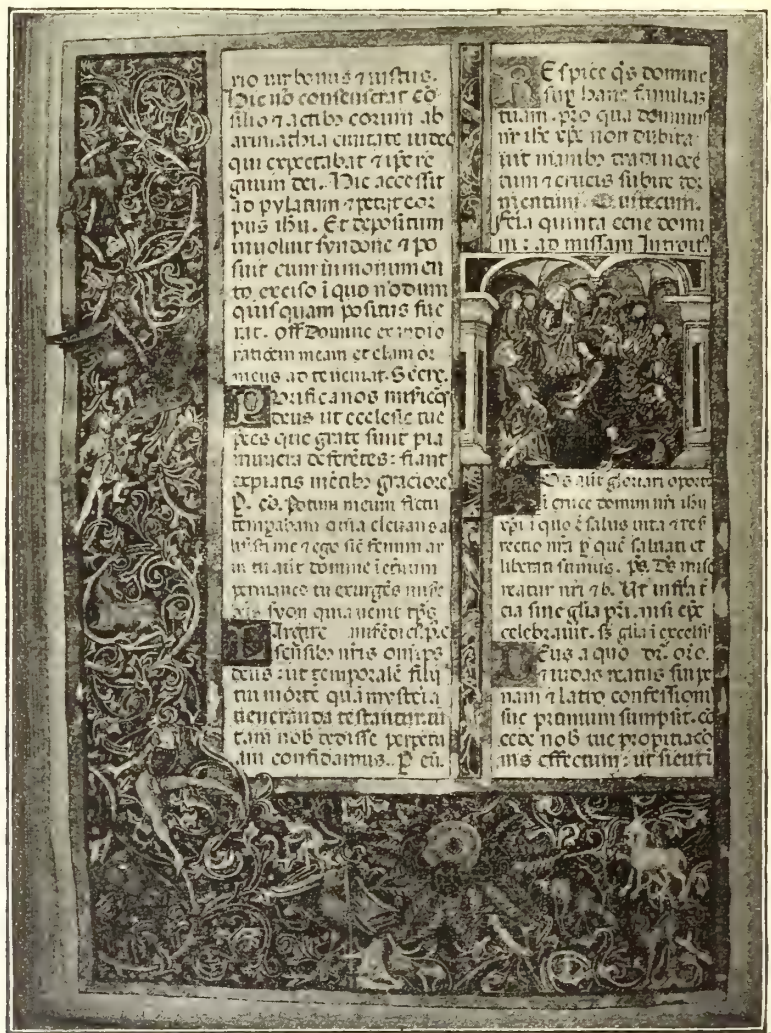 rio vir bonus ⁊ iustus.
Hic nō consenserat cō
silio ⁊ actibꝫ eorum ab
arimathia ciuitate iudee
qui expectabat ⁊ ip̄e re
gnum dei. Hic accessit
ad pylatum ⁊ petijt cor
pus ihū. Et depositum
inuoluit syndone ⁊ po
suit eum in monumen
to exciso ī quo nōdum
quisquam positus fue
rat. Off Domine exaudi o
rationem meam et clamor
meus ad te veniat. Secre.
Purifica nos misericors
deus ut ecclesie tue
preces que grate sunt pia
munera deferētes: fiant
expiatis mētibꝫ graciores
P. cō. Potum meum fletu
temperabam quia eleuans al
lisisti me ⁊ ego sic̄ fenum ar
ui tu aūt domine ī eternum
permanes tu exurgēs mise
syon quia uenit tp̄s
Largire
sensibꝫ nr̄is om̄ps
deus: ut temporalē filij
tui mortē quā mysteria
veneranda testantur. vi
tam nob̄ dedisse perpetu
am confidamus. P eū.
Respice q̄s domine
sup̄ hanc familiā
tuam. pro qua dominus
nr̄ ihs xp̄c non dubita
uit manibꝫ tradi nocē
tum ⁊ crucis subire tor
mentum. Qui tecum.
Feria quinta cene domi
ni: ad missam Introit᷒
Nos aūt gloriari oportet
ī cruce domini nr̄i ihū
xp̄i ī quo ē salus uita ⁊ res
rectio nr̄a ꝑ quē saluati et
liberati sumus. ps. Ds mise
reatur nr̄i ⁊ b.
sine glia pr̄i. nisi ep̄c
celebrauit. glia ī excelsis
Deus a quo oro.
⁊ iudas reatus sui pe
nam ⁊ latro confessionis
sue premium sumpsit. cō
cede nob̄ tue propitiacō
nis effectum: ut sicuti